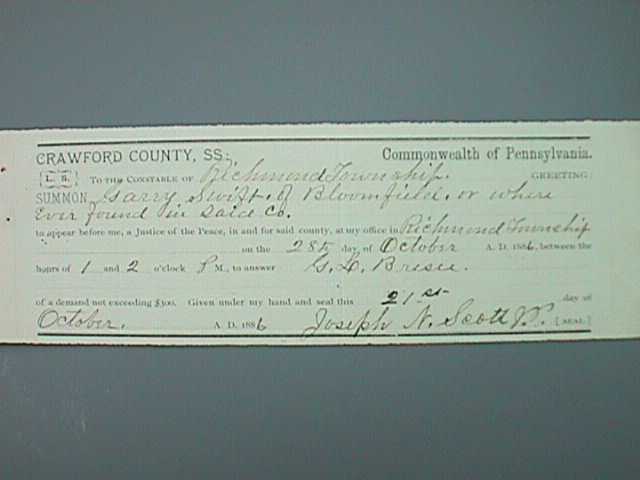 CRAWFORD COUNTY, SS: Commonwealth of Pennsylvania.
L. S. TO THE CONSTABLE OF Richmond Township. GREETING:
SUMMON Garry Swift, of Bloomfield, or where
Ever found in Said Co.
to appear before me, a Justice of the Peace, in and for said county, at my office in Richmond Township
on the 28th day of October A. D. 1886, between the
hours of 1 and 2 o'clock P M., to answer G. L. Brisee.
of a demand not exceeding $300. Given under my hand and seal this 21st day of
October. A. D. 1886 Joseph N. Scott JP. [SEAL.]